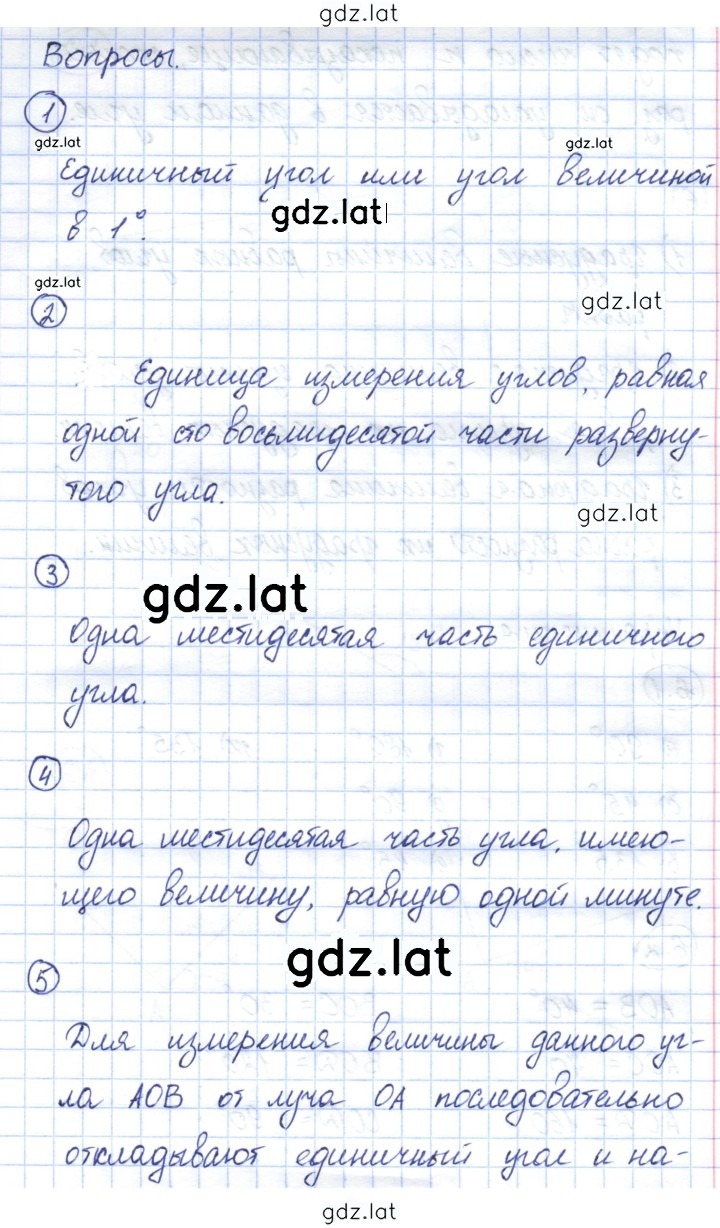 gdz.lat
Вопросы.
1
gdz.lat
gdz.lat
Единичный угол или угол величиной
gdz.lat
в 1°.
gdz.lat
2
gdz.lat
Единица измерения углов, равная
одной сто восьмидесятой части разверну-
того угла.
gdz.lat
3
gdz.lat
Одна шестидесятая часть единичного
угла.
4
Одна шестидесятая часть угла, имею-
щего величину, равную одной минуте.
gdz.lat
5
Для измерения величины данного уг-
ла АОВ от луча ОА последовательно
откладывают единичный угол и на-
gdz.lat